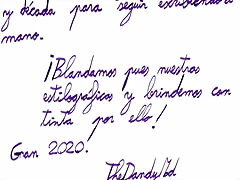 y década para seguir escribiendo a
mano.
¡Blandamos pues nuestras
estilográficas y brindemos con
tinta por ello!
Gran 2020.
TheDandy